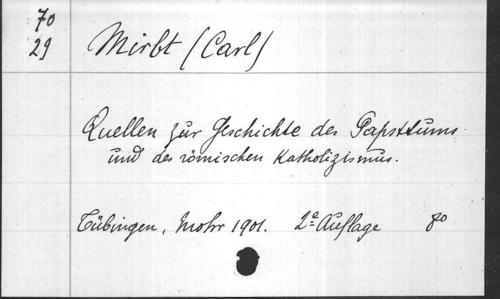 70
29
Mirbt (Carl)
Quellen zur Geschichte des Papsttums
und des römischen Katholizismus.
Tübingen, Mohr 1901. 2e Auflage 8o